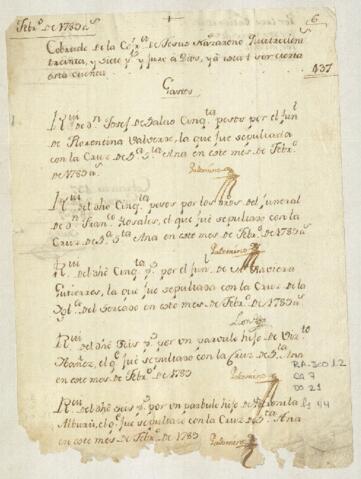 Febr.o de 1783 a.s
6
Cobranza de la Co.a de Jesus Nazareno Quatrocien.s
treinta, y siete p.s y juro à Dios, y à esta + ser cierta
esta cuenta
437
Gastos
Rvi de D.n Josef de Salvo Cinq.ta pesos por el fun.l
de Florentina Valverde, la que fue sepultada
con la Cruz de S.a S.ta Ana en este mes de Febr.o
de 1783 a.s
Palomino
Rvi del dho Cinq.ta pesos por los dros del funeral
de D.n Fran.co Rosales, el que fue sepultado con la
Cruz de S.a S.ta Ana en este mes de Febr.o de 1783 a.s
Palomino
Rvi del dho Cinq.ta p.s por el fun.l de M.a Xaviera
Gutierres, la que fue sepultada con la Cruz de la
Ygl.a del Sercado en este mes de Febr.o de 1783 a.s
Rvi del dho Seis p.s por un parbulo hijo de
Ibañez, el q.e fue sepultado con la Cruz de S.ta Ana
en este mes de Febr.o de 1783
Palomino
Rvi del dho Seis p.s por un parbulo hijo de
el q.e fue sepultado con la Cruz de S.ta Ana
en este mes de Febr.o de 1783
Palomino
CA 7
DO 21